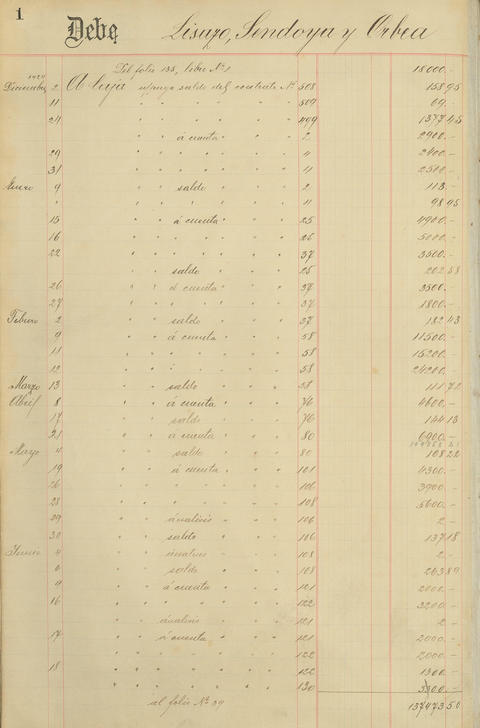 1
Debe Lisazo, Sendoya y Orbea
Del folio 135, libro Nº 1 18000.-
Diciembre 2 A Caja s/pago saldo del contrato Nº 508 158 95
11 " " " " " " 509 69.-
21 " " " " " " 499 1377 45
" " á cuenta " " " 2 2900.-
29 " " " " " " 4 2400.-
31 " " " " " " 11 2500.-
Enero 9 " " saldo " " " 2 113.-
" " " " " " " 11 98 95
15 " " á cuenta " " " 25 4900.-
16 " " " " " " 25 5000.-
22 " " " " " " 37 3500.-
" " saldo " " " 25 202 58
26 " " á cuenta " " " 37 3500.-
27 " " " " " " 37 1800.-
Febrero 2 " " saldo " " " 37 182 43
9 " " á cuenta " " " 58 11500.-
11 " " " " " " 58 15200.-
12 " " " " " " 58 24200.-
Marzo 13 " " saldo " " " 58 111 72
Abril 8 " " á cuenta " " " 76 4600.-
17 " " saldo " " " 76 144 13
21 " " á cuenta " " " 80 6900.-
Mayo 11 " " saldo " " " 80 108 22
19 " " á cuenta " " " 101 4300.-
26 " " " " " " 106 3900.-
28 " " " " " " 108 5600.-
29 " " análisis " " " 106 2.-
30 " " saldo " " " 106 137 18
Junio 4 " " análisis " " " 108 2.-
6 " " saldo " " " 108 263 89
9 " " á cuenta " " " 121 2000.-
16 " " " " " " 122 3200.-
" " análisis " " " 121 2.-
17 " " á cuenta " " " 121 2000.-
" " " " " " 122 2000.-
18 " " " " " " 122 1300.-
" " " " " " 130 3300.-
al folio Nº 39 137473 50